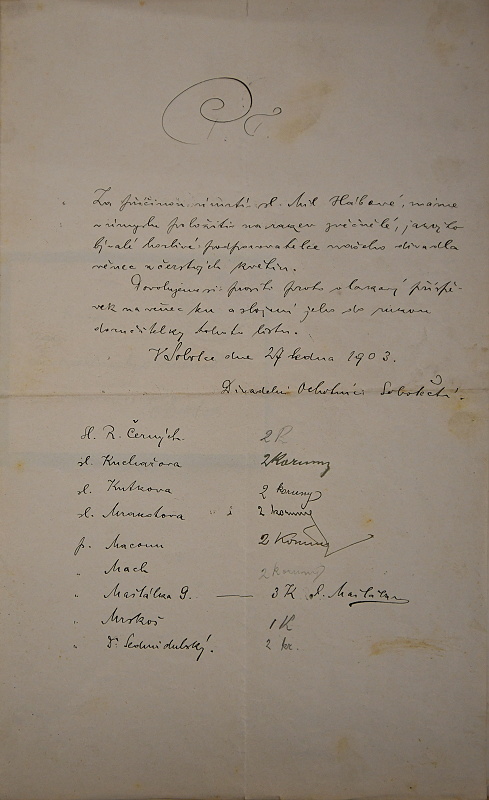 P. T.
Za příčinou úmrtí sl. Mil. Hábové, máme
v úmyslu položiti na rakev zvěčnělé, jakožto
bývalé horlivé podporovatelce našeho divadla
věnec z čerstvých květin.
Dovolujeme si prositi proto o laskavý příspě-
vek na věnec ten a složení jeho do rukou
doručitelky tohoto listu.
V Sobotce dne 27 ledna 1903.
Divadelní Ochotníci Sobotečtí.
sl. R. Černých 2 K.
sl. Kuchařova 2 Koruny
sl. Kutkova 2 koruny
sl. 2 koruny
p. Macoun 2 Koruny
" Mach 2 koruny
" Maštálka 3 K
" Mrkos 1 K
" Dr. Sedmidubský. 2 kr.